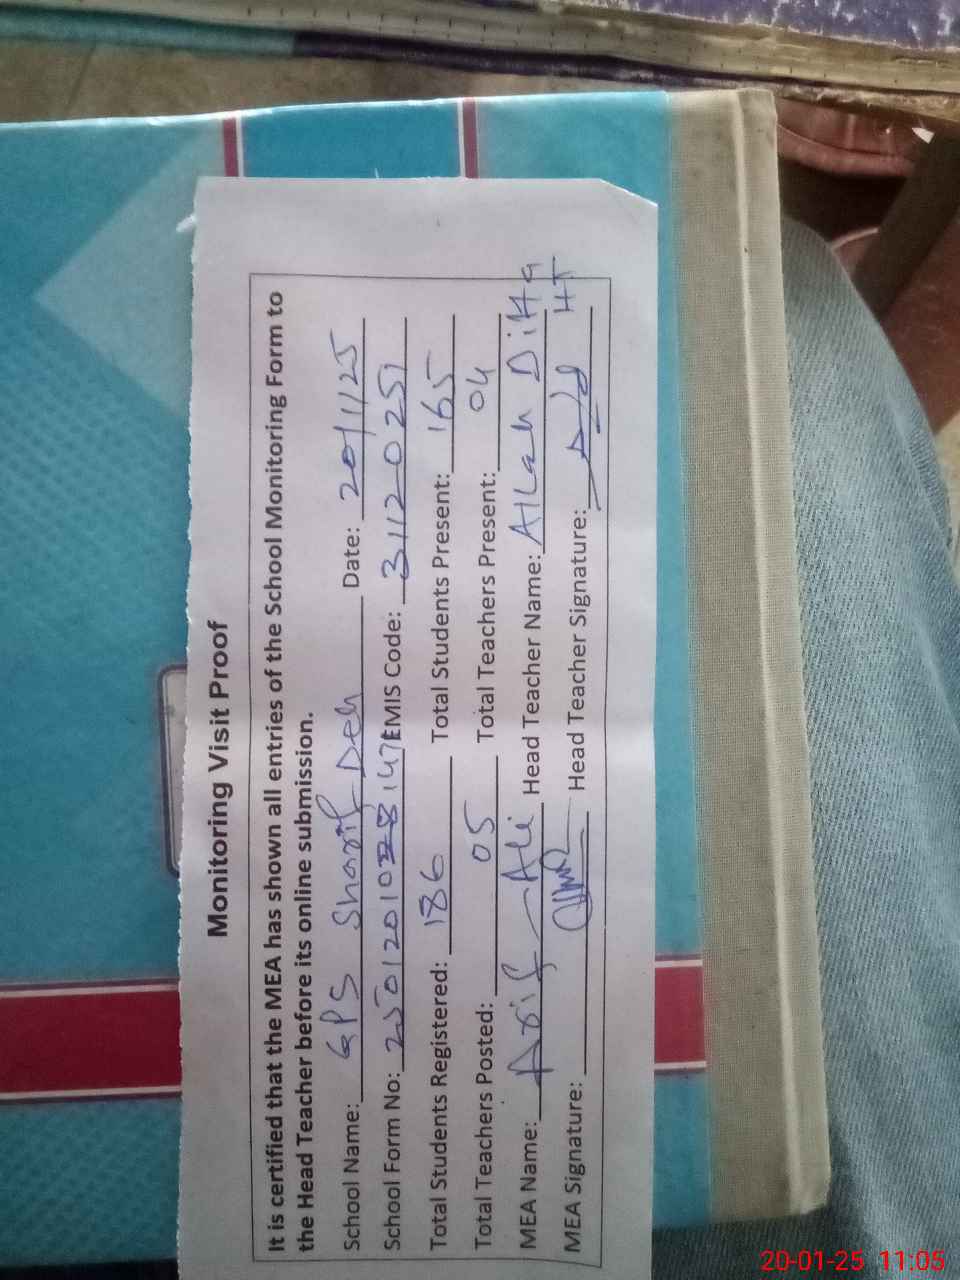 Monitoring Visit Proof
It is certified that the MEA has shown all entries of the School Monitoring Form to
the Head Teacher before its online submission.
School Name: GPS Sharif Deh Date: 20/1/25
School Form No: EMIS Code: 31120251
Total Students Registered: 186 Total Students Present: 165
Total Teachers Posted: 05 Total Teachers Present: 04
MEA Name: Asif Ali Head Teacher Name: Allah Ditta
MEA Signature: Head Teacher Signature: HT
20-01-25 11:05